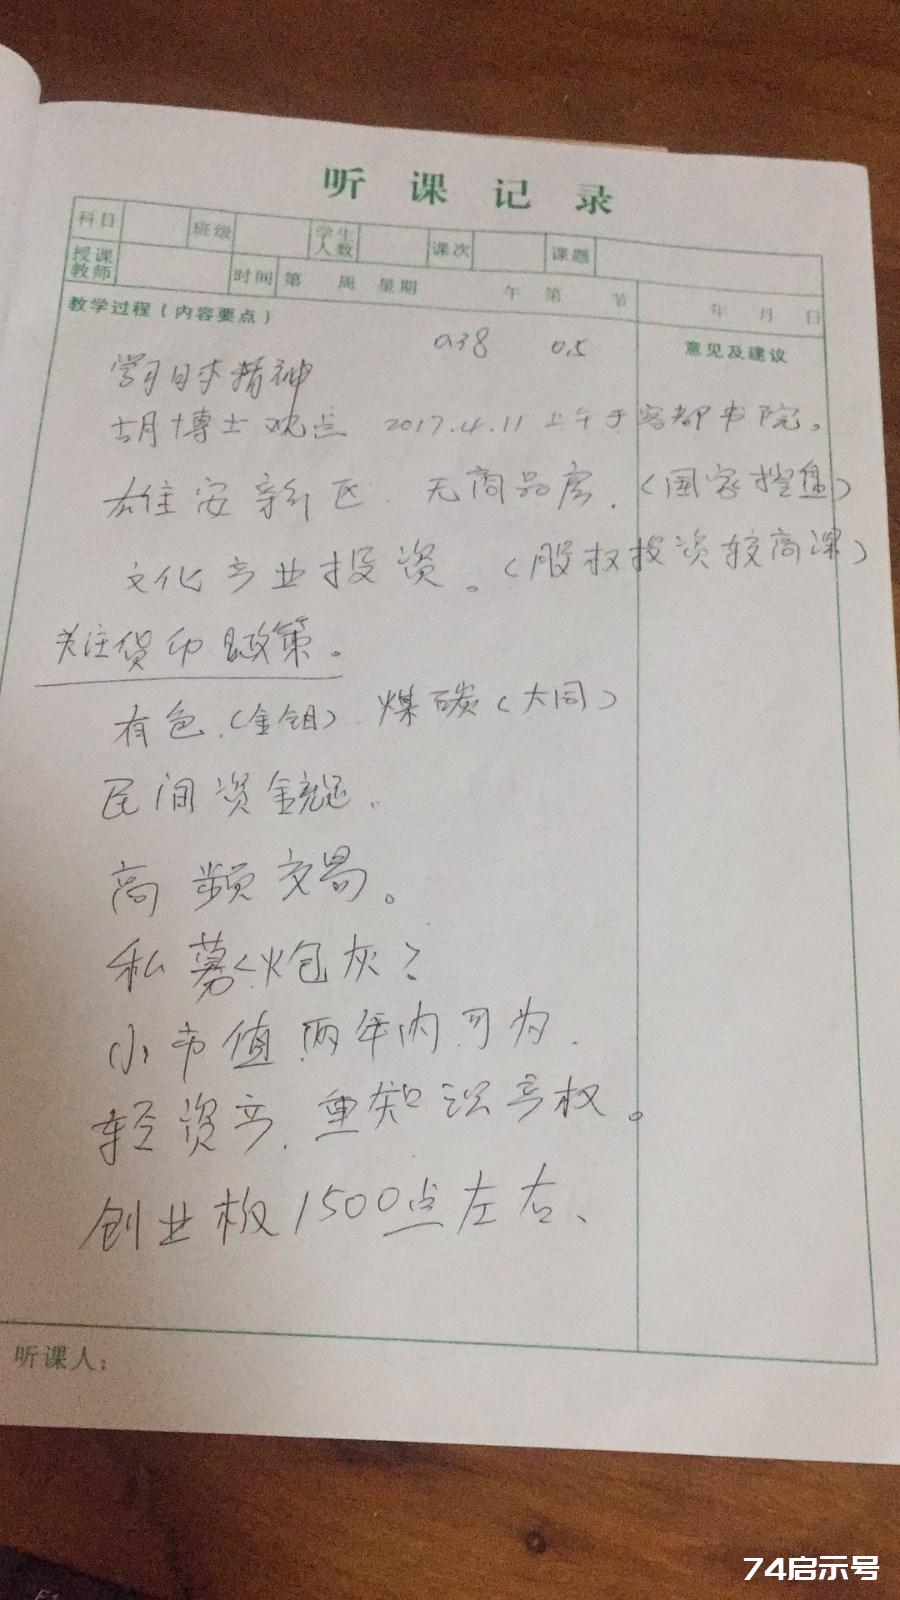 听课记录
科目 班级 学生人数 课次 课题
授课教师 时间 第 周 星期 午 第 节 年 月 日
教学过程（内容要点） 意见及建议
0.38 0.5
学习日本精神
胡博士观点 2017.4.11上午于客都书院。
雄安新区.无商品房.(国家控盘)
文化产业投资。(股权投资较高课)
关注货币政策。
有色.(金钼).煤碳(大同)
民间资金
高频交易。
私募<炮灰?
小市值两年内可为.
轻资产.重知识产权。
创业板1500点左右、
听课人：
74启示号